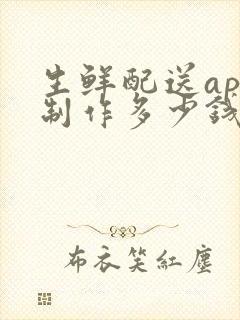 生鲜配送ap
制作多少钱
布衣笑红尘